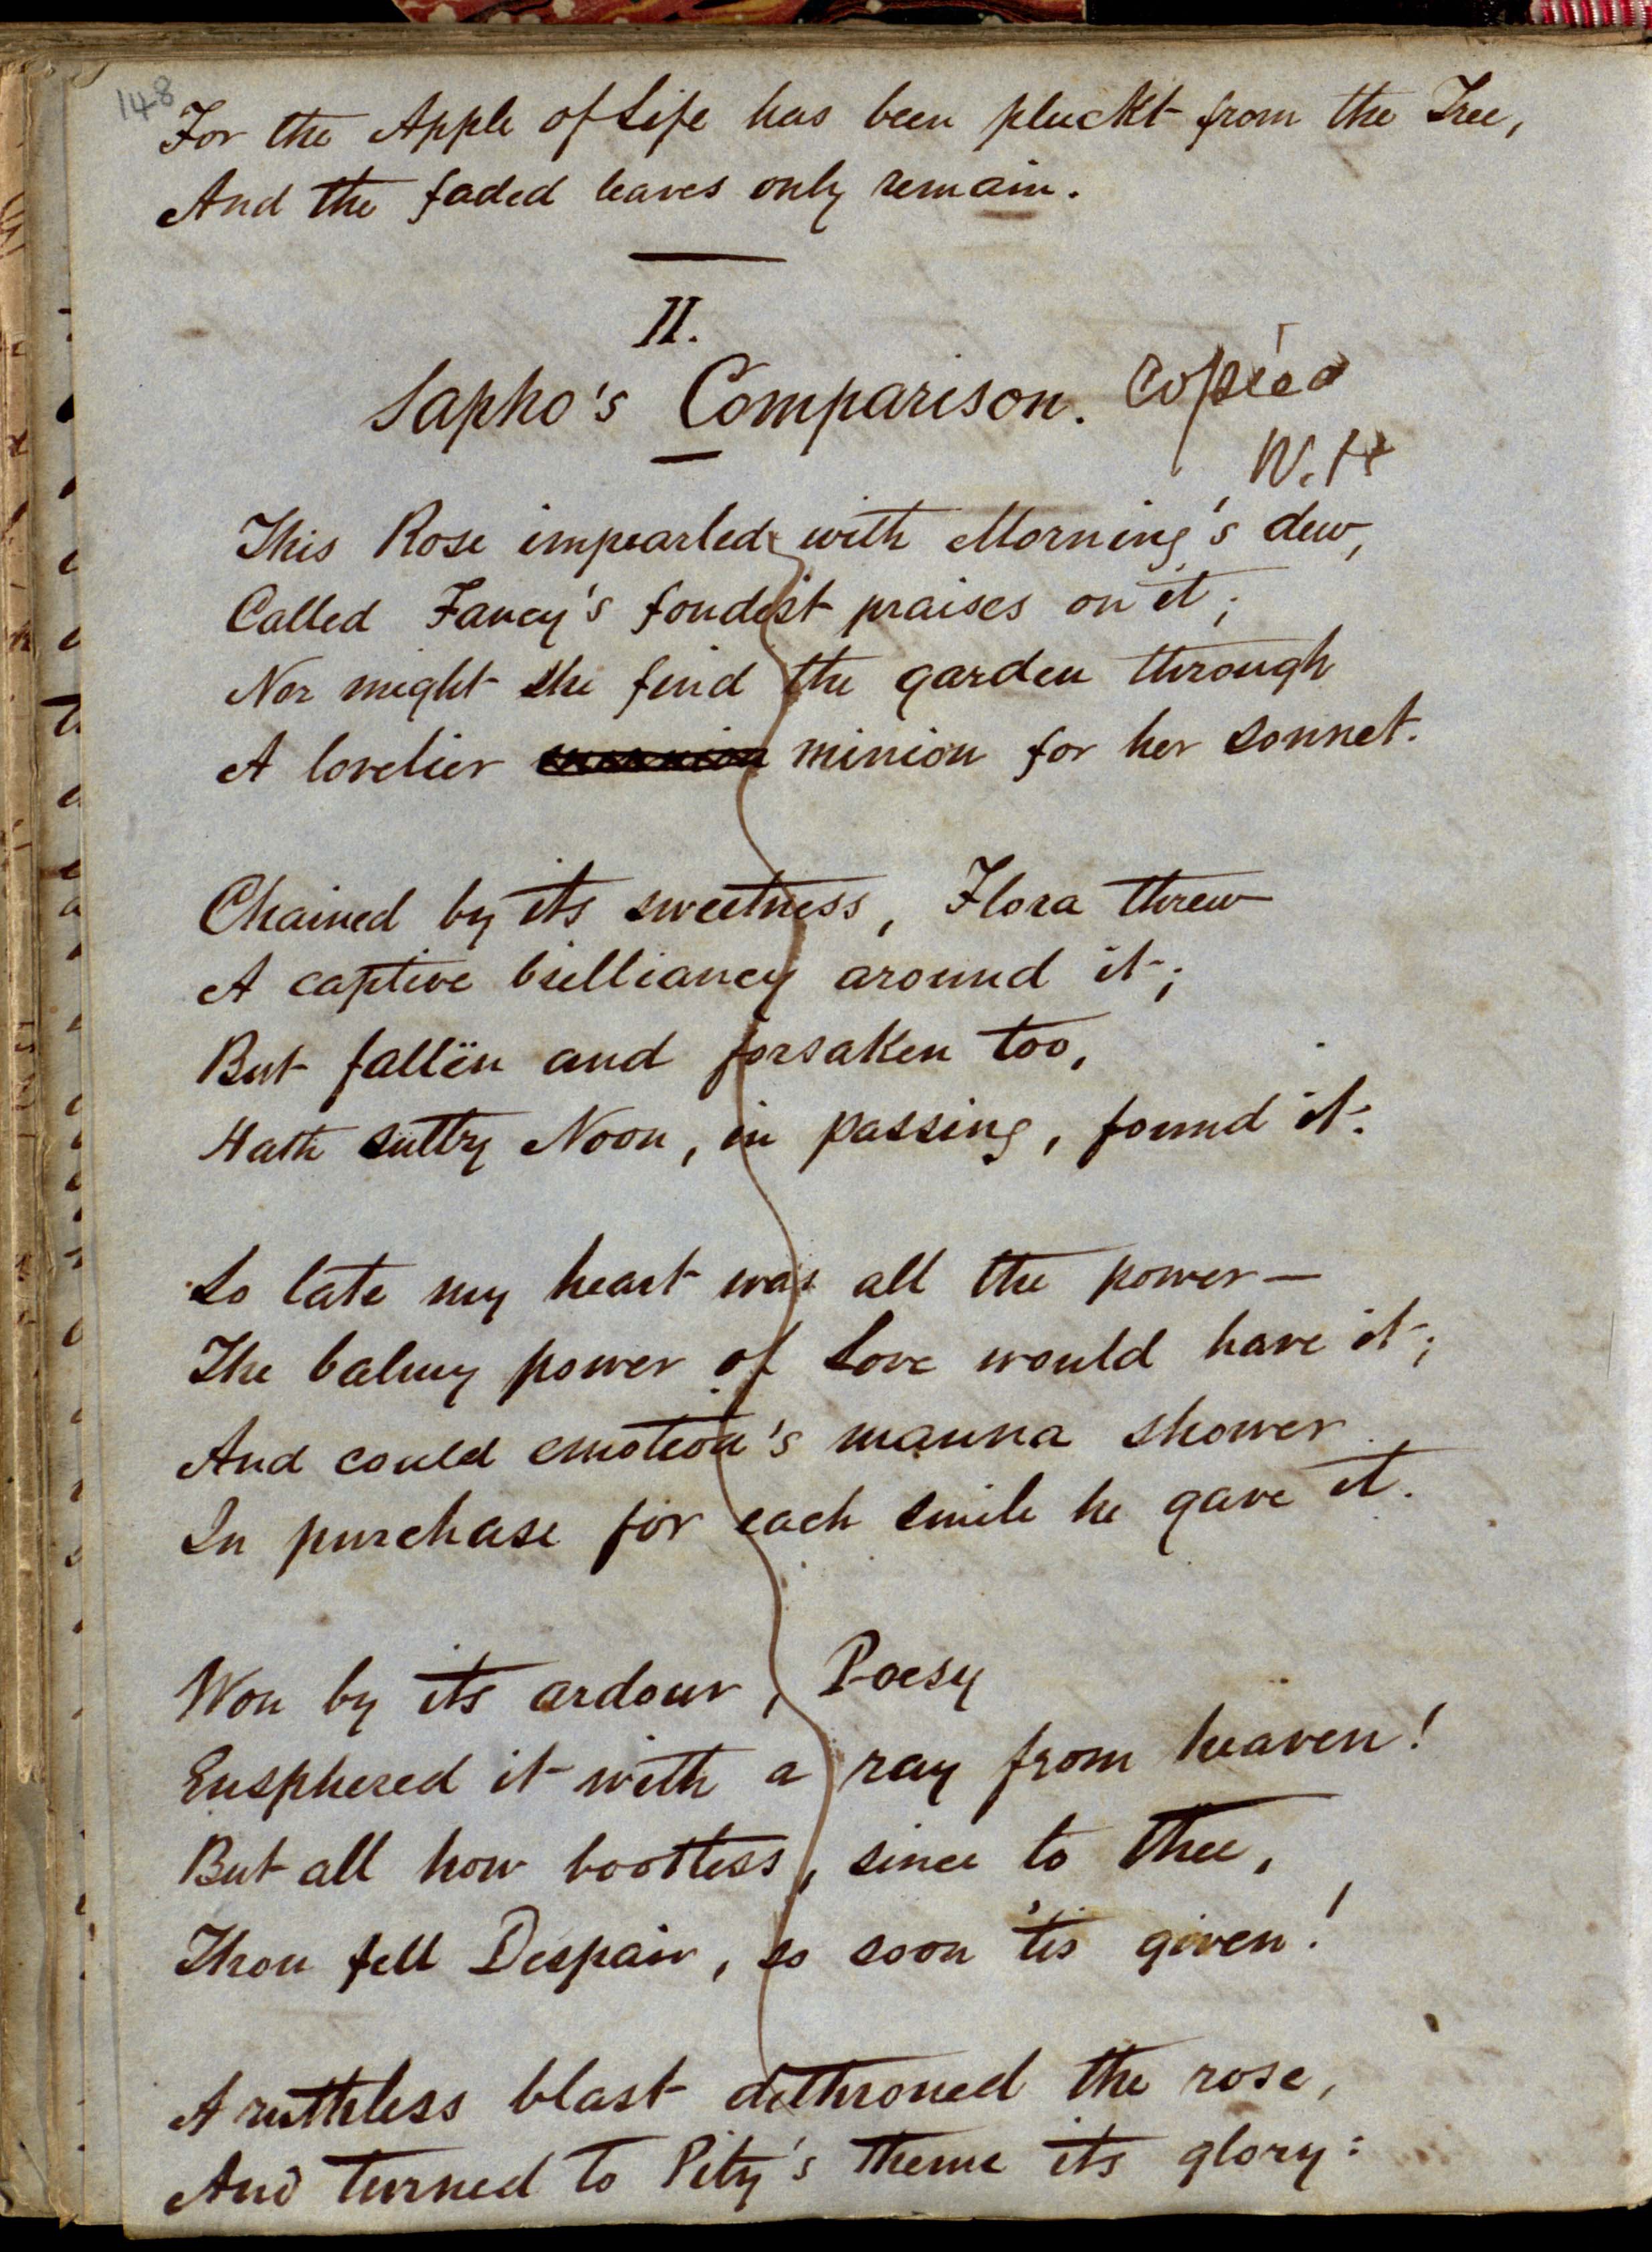 148
For the Apple of Life has been pluckt from the Tree,
And the faded leaves only remain.
II.
Sapho's Comparison. Copied
W. H
This Rose impearled with Morning's dew,
Called Fancy's fondest praises on it;
Nor might she find the garden through
A lovelier minion for her sonnet.
Chained by its sweetness, Flora threw
A captive brilliancy around it;
But fallën and forsaken too,
Hath sultry Noon, in passing, found it.
So late my heart was all the power—
The balmy power of Love would have it;
And could emotion's manna shower
In purchase for each smile he gave it.
Won by its ardour, Poesy
Ensphered it with a ray from heaven!
But all how bootless, since to thee,
Thou fell Despair, so soon 'tis given!
A ruthless blast dethroned the rose,
And turned to Pity's theme its glory: